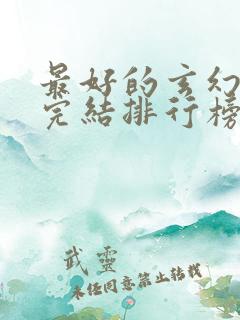 最好的玄幻
完结排行榜
武靈
未经同意禁止转载